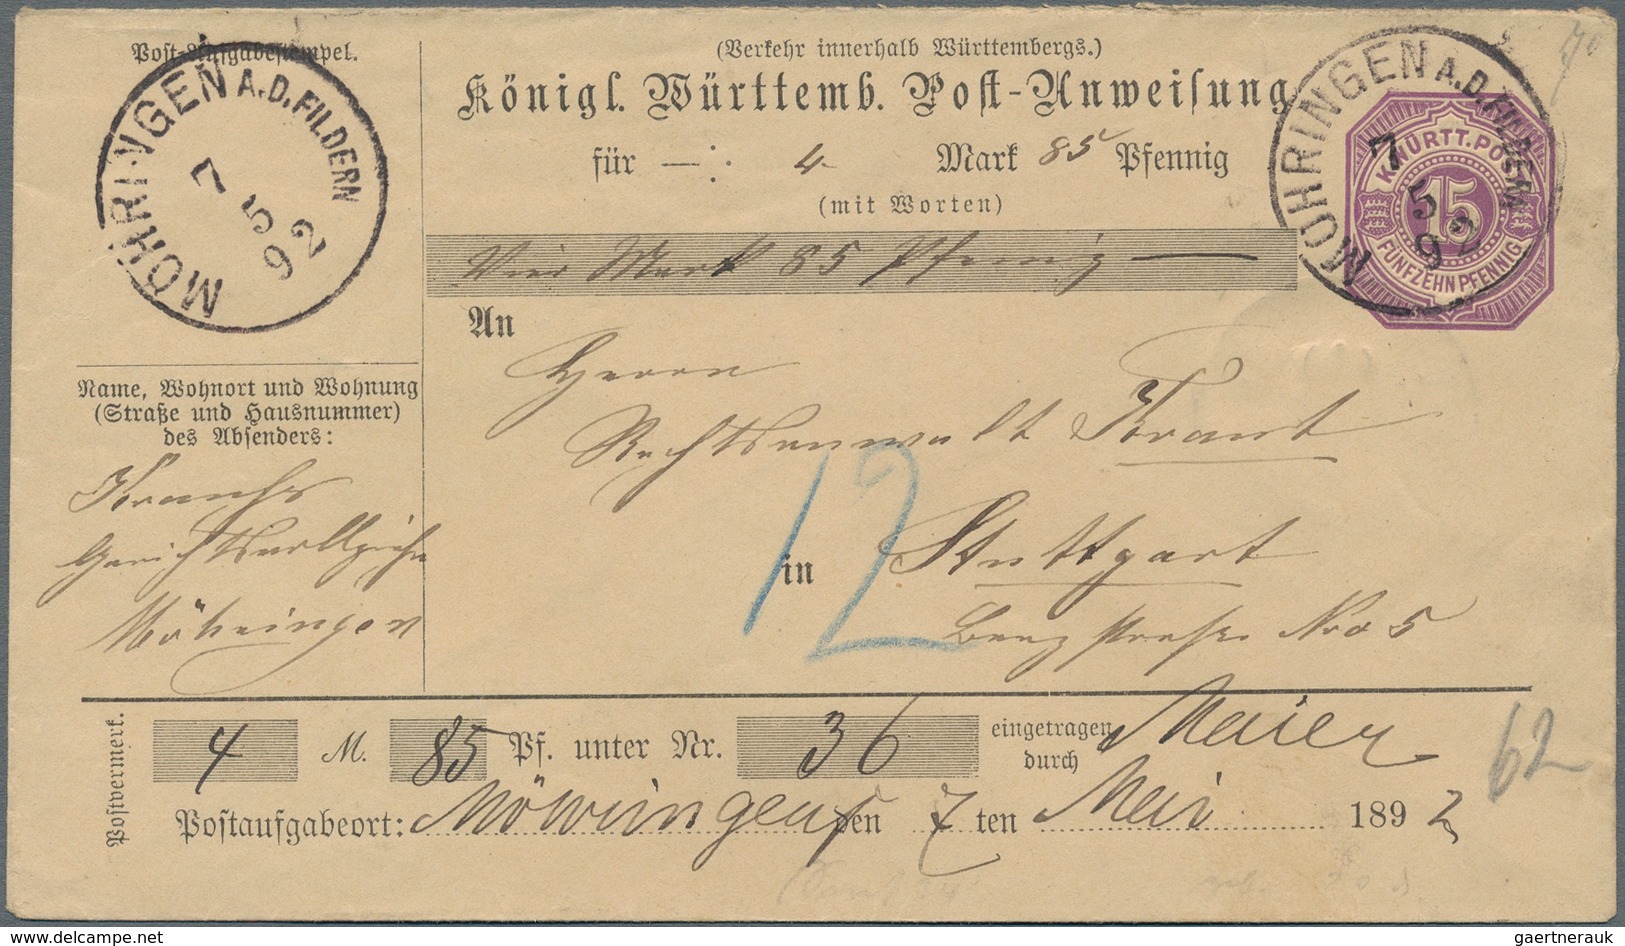 Post-Aufgabestempel.
MÖHRINGEN A.D. FILDERN
7
5
92
(Verkehr innerhalb Württembergs.)
Königl. Württemb. Post-Anweisung
für —: 4 Mark 85 Pfennig
(mit Worten)
Vier Mark 85 Pfennig —
MÖHRINGEN A.D. FILDERN
7
5
92
K. WÜRTT. POST
15
FÜNFZEHN PFENNIG
An
Herrn
Rechtsanwalt Kraut
in Stuttgart
Nro 5
12
Name, Wohnort und Wohnung
(Straße und Hausnummer)
des Absenders:
Gerichtsvollzieher
Möhringen
Postvermerk.
4 M. 85 Pf. unter Nr. 36 eingetragen durch Maier
Postaufgabeort: Möhringen den 7 ten Mai 1892
62
delcampe.net
gaertnerauk